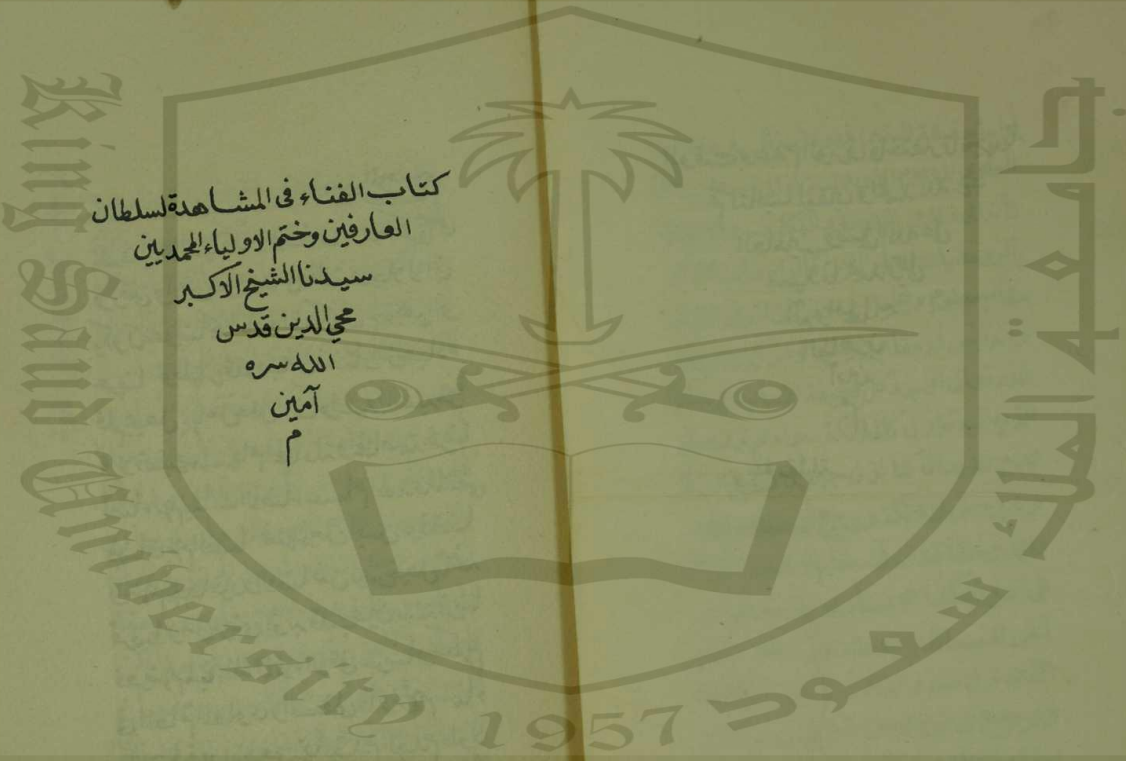 كتاب الفناء فى المشاهدة لسلطان
العارفين وختم الاولياء المحمديين
سيدنا الشيخ الاكبر
محي الدين قدس
الله سره
آمين
م
King Saud University 1957
جامعة الملك سعود